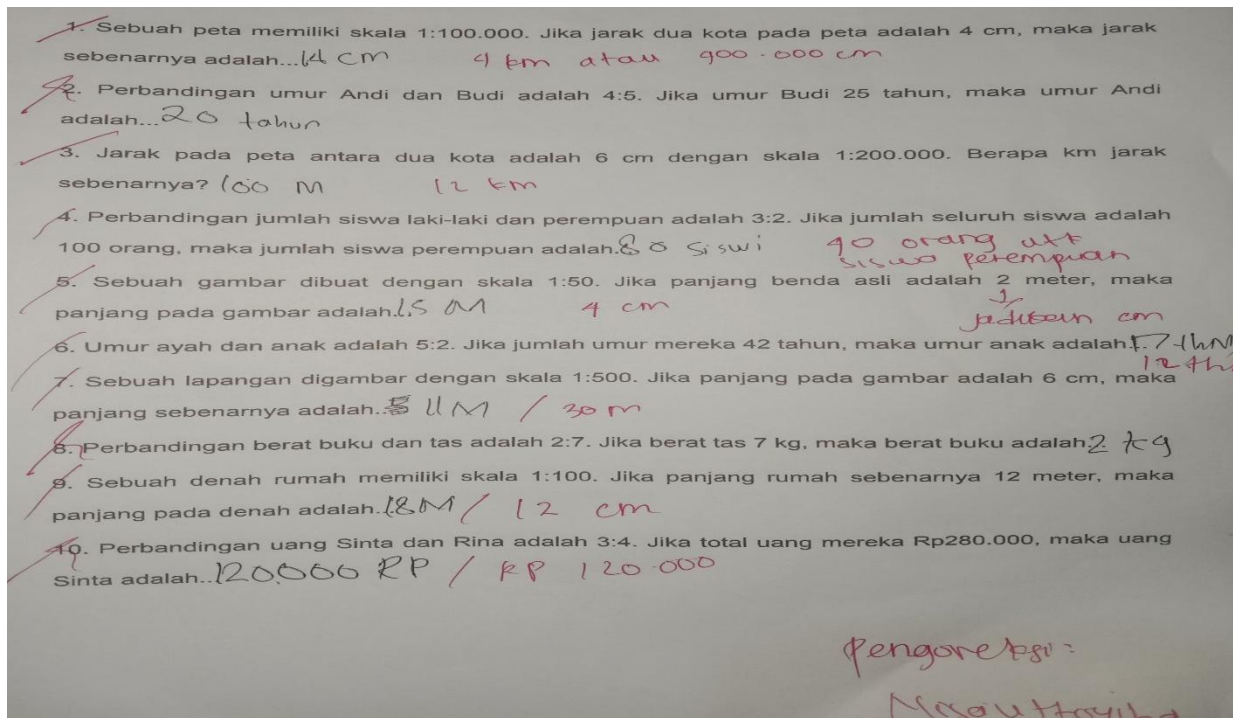 1. Sebuah peta memiliki skala 1:100.000. Jika jarak dua kota pada peta adalah 4 cm, maka jarak
sebenarnya adalah...14 cm 4 km atau 400.000 cm
2. Perbandingan umur Andi dan Budi adalah 4:5. Jika umur Budi 25 tahun, maka umur Andi
adalah...20 tahun
3. Jarak pada peta antara dua kota adalah 6 cm dengan skala 1:200.000. Berapa km jarak
sebenarnya? 100 M 12 km
4. Perbandingan jumlah siswa laki-laki dan perempuan adalah 3:2. Jika jumlah seluruh siswa adalah
100 orang, maka jumlah siswa perempuan adalah.80 siswi 40 orang utk
siswa perempuan
5. Sebuah gambar dibuat dengan skala 1:50. Jika panjang benda asli adalah 2 meter, maka
panjang pada gambar adalah.1,5 M 4 cm jadikan cm
6. Umur ayah dan anak adalah 5:2. Jika jumlah umur mereka 42 tahun, maka umur anak adalah. 7 thn
12 th
7. Sebuah lapangan digambar dengan skala 1:500. Jika panjang pada gambar adalah 6 cm, maka
panjang sebenarnya adalah.. 11 M / 30 m
8. Perbandingan berat buku dan tas adalah 2:7. Jika berat tas 7 kg, maka berat buku adalah 2 kg
9. Sebuah denah rumah memiliki skala 1:100. Jika panjang rumah sebenarnya 12 meter, maka
panjang pada denah adalah.18M / 12 cm
10. Perbandingan uang Sinta dan Rina adalah 3:4. Jika total uang mereka Rp280.000, maka uang
Sinta adalah..120.000 RP / RP 120.000
Pengoreksi: